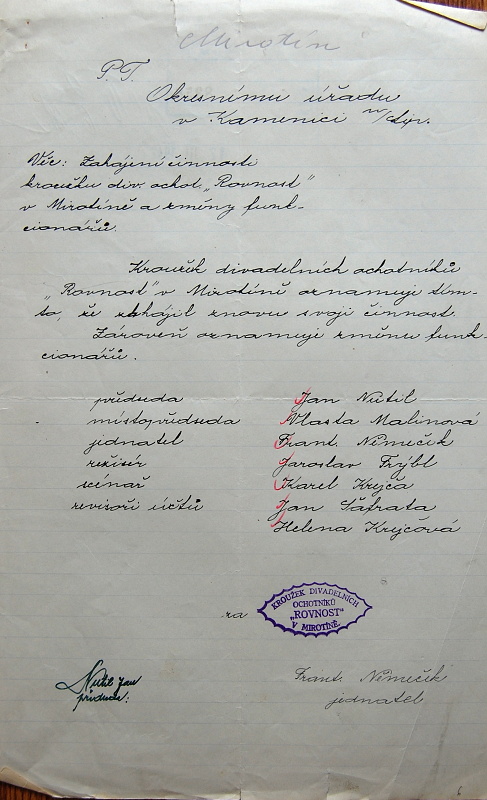 Mirotín
P.T.
Okresnímu úřadu
v Kamenici n/Lip.
Věc: Zahájení činnosti
kroužku div. ochot. „Rovnost"
v Mirotíně a změny funk-
cionářů.
Kroužek divadelních ochotníků
„Rovnost" v Mirotíně oznamuje tím-
to, že zahájil znovu svoji činnost.
Zároveň oznamuje změnu funk-
cionářů.
předseda Jan Nutil
místopředseda Vlasta Malinová
jednatel Frant. Němeček
režisér Jaroslav Frýbl
scénář Karel Krejča
revisoři účtů Jan Šafrata
Helena Krejčová
za
KROUŽEK DIVADELNÍCH
OCHOTNÍKŮ
„ROVNOST"
V MIROTÍNĚ.
Nutil Jan Frant. Němeček
předseda: jednatel
6